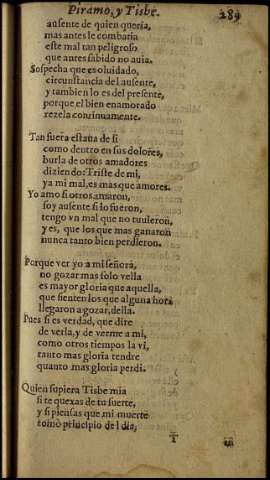 Piramo, y Tisbe. 289
ausente de quien queria,
mas antes le combatia
este mal tan peligroso
que antes sabido no auia.
Sospecha que es oluidado,
circunstancia del ausente,
y tambien lo es del presente,
porque el bien enamorado
rezela continuamente.
Tan fuera estaua de si
como dentro en sus dolores,
burla de otros amadores
diziendo: Triste de mi,
ya mi mal, es mas que amores.
Yo amo si otros amaron,
soy ausente si lo fueron,
tengo vn mal que no tuuieron,
y es, que los que mas ganaron
nunca tanto bien perdieron.
Porque ver yo a mi señora,
no gozar mas solo vella
es mayor gloria que aquella,
que sienten los que alguna hora
llegaron a gozar della.
Pues si es verdad, que dire
de verla, y de verme a mi,
como otros tiempos la vi,
tanto mas gloria tendre
quanto mas gloria perdi.
Quien supiera Tisbe mia
si te quexas de tu suerte,
y si piensas que mi muerte
tomò principio del dia,
T